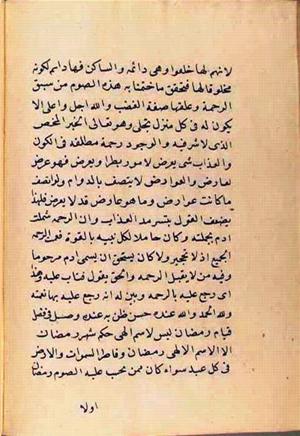 لانهم لها خلقوا وهى دائمة والساكن فيها دايم لكونه
مخلوقا لها فتحقق ما ختمنا به هذه الصوم من سبق
الرحمة وغلبها صفة الغضب والله اجل واعلى الا
يكون له فى كل منزل تجلى وهو تعالى الخير المحض
الذى لا شر فيه والوجود رحمة مطلقة فى الكون
والعذاب شى يعرض لامور تطرا وتعرض فهو عرض
لعارض والعوارض لا يتصف بالدوام ولو اتصف
ما كانت عوارض وما هو عارض قد لا يعرض فلهذا
يضعف القول بتسرمد العذاب وان الرحمة شملت
ادم بجملته وكان حاملا لكل نبيه بالقوة فعم الرحم
الجميع اذ لا تحجير ولا كان يستحق ان يسمى ادم مرحوما
وفيه من لا يقبل الرحمة والحق يقول فتاب عليه وهدى
اى رجع عليه بالرحمة وبين له انه رجع عليه بها فعمه
ولله الحمد والله عند حسن ظن به عنده وصل فى فضل
قيام رمضان ليس لاسم الهى حكم شهر رمضان
الا الاسم الالهى رمضان وفاطر السموات والارض
فى كل عبد سواء كان ممن يجب عليه الصوم رمضان
اولا